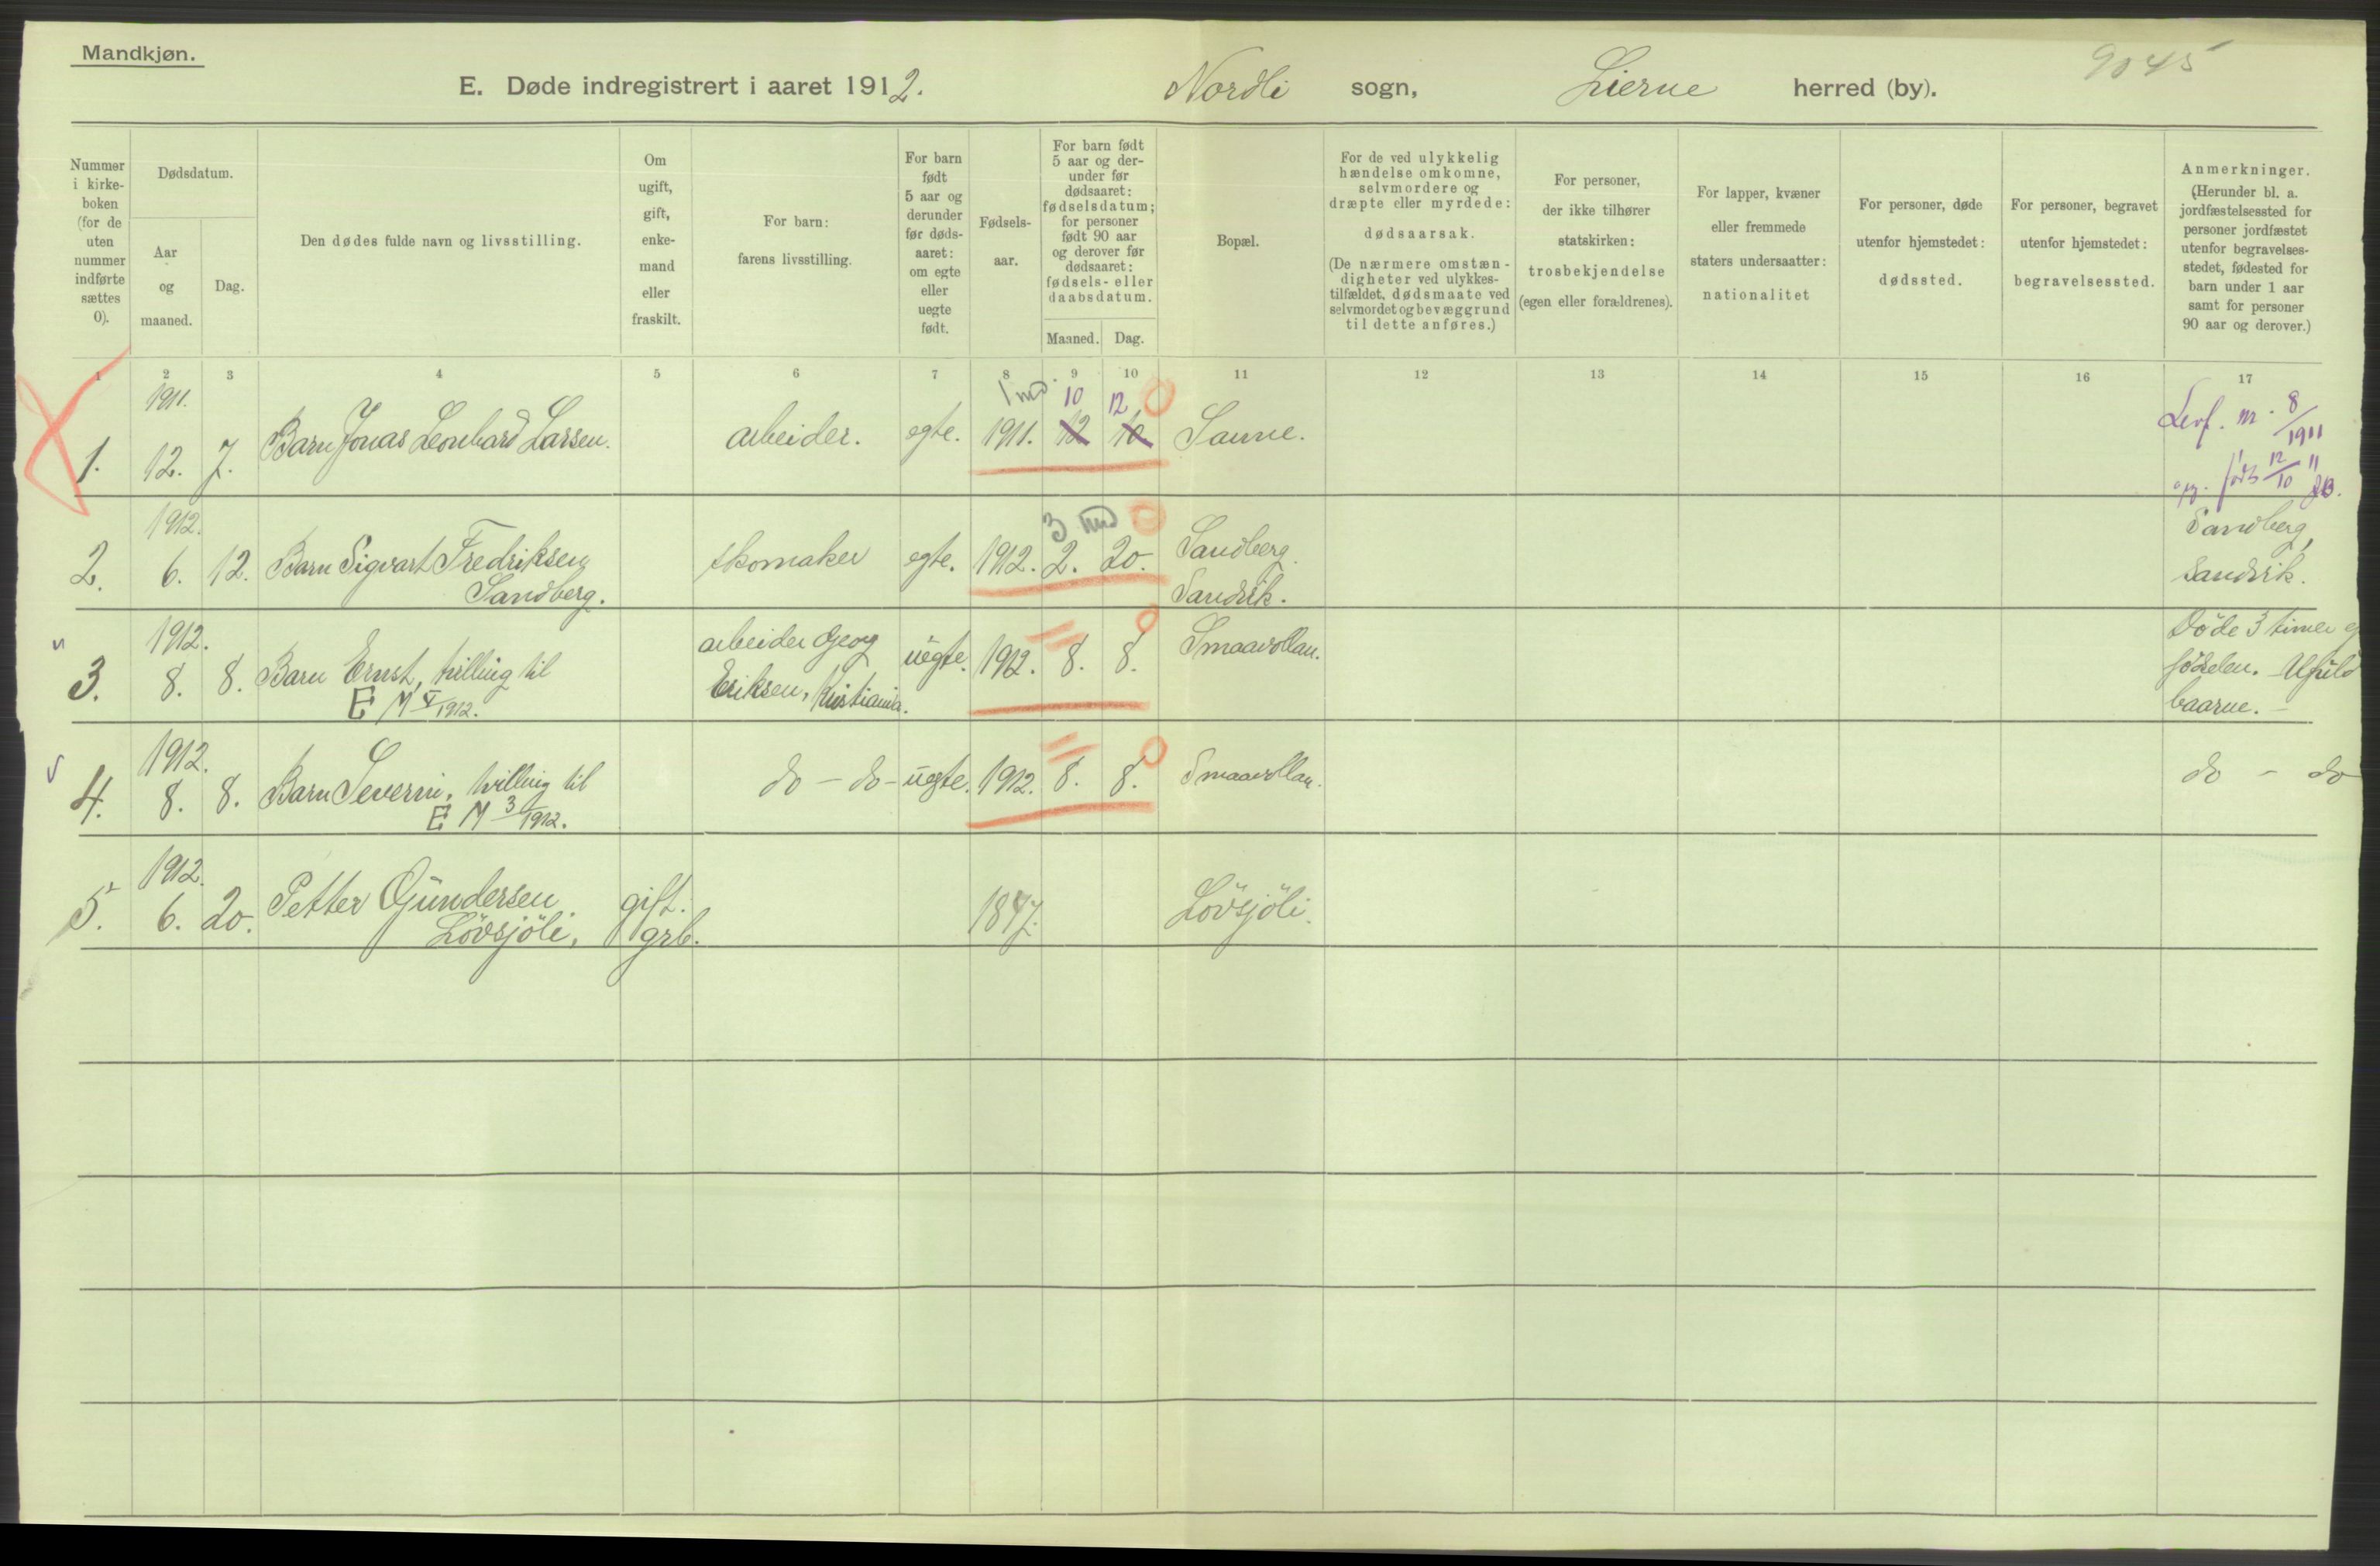 Mandkjøn.
E. Døde indregistrert i aaret 1912. Nordli sogn, Lierne herred (by). 9045
Nummer i kirkeboken (for de uten nummer indførte sættes 0).
Dødsdatum.
Aar og maaned.
Dag.
Den dødes fulde navn og livsstilling.
Om ugift, gift, enkemand eller fraskilt.
For barn: farens livsstilling.
For barn født 5 aar og derunder før dødsaaret: om egte eller uegte født.
Fødselsaar.
For barn født 5 aar og derunder før dødsaaret: fødselsdatum; for personer født 90 aar og derover før dødsaaret: fødsels- eller daabsdatum.
Maaned. Dag.
Bopæl.
For de ved ulykkelig hændelse omkomne, selvmordere og dræpte eller myrdede: dødsaarsak.
(De nærmere omstændigheter ved ulykkestilfældet, dødsmaate ved selvmordet og bevæggrund til dette anføres.)
For personer, der ikke tilhører statskirken: trosbekjendelse (egen eller forældrenes).
For lapper, kvæner eller fremmede staters undersaatter: nationalitet
For personer, døde utenfor hjemstedet: dødssted.
For personer, begravet utenfor hjemstedet: begravelsessted.
Anmerkninger.
(Herunder bl. a. jordfæstelsessted for personer jordfæstet utenfor begravelsesstedet, fødested for barn under 1 aar samt for personer 90 aar og derover.)
1 2 3 4 5 6 7 8 9 10 11 12 13 14 15 16 17
1911. 1 md. 10 12
1. 12. 7. Barn Jonas Leonhard Larssen. arbeider. egte. 1911. 12 10 Sanne. nr. 8/1911
født 12/10 11
1912. 3 md
2. 6. 12. Barn Sigvart Fredriksen Sandberg. skomaker egte. 1912. 2. 20. Sandberg. Sandvik. Sandberg, Sandvik.
1912.
3. 8. 8. Barn Ernst, tvilling til E M V 1912. arbeider Georg Eriksen, Kristiania. uegte. 1912. 8. 8. Smaavollan. Døde 3 timer e fødselen. Ufuld baarne. –
1912.
4. 8. 8. Barn Severin, tvilling til E M 3/1912. do – do – uegte. 1912. 8. 8. Smaavollan. do – do
1912.
5. 6. 20. Petter Gundersen Lövsjöli, gift. grb. 1847. Lövsjöli.